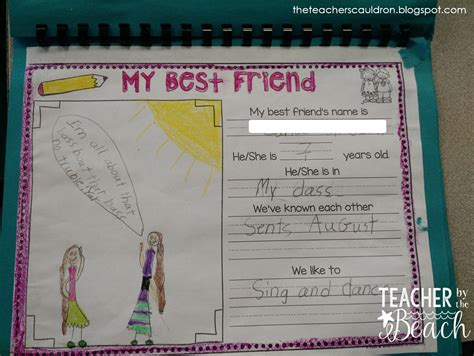 theteacherscauldron.blogspot.com
My Best Friend
I'm all about that
bass bout that bass
no truble
My best friend's name is
He/She is 7 years old.
He/She is in
My class
We've known each other
Sents August
We like to
Sing and danc
TEACHER
by the
Beach